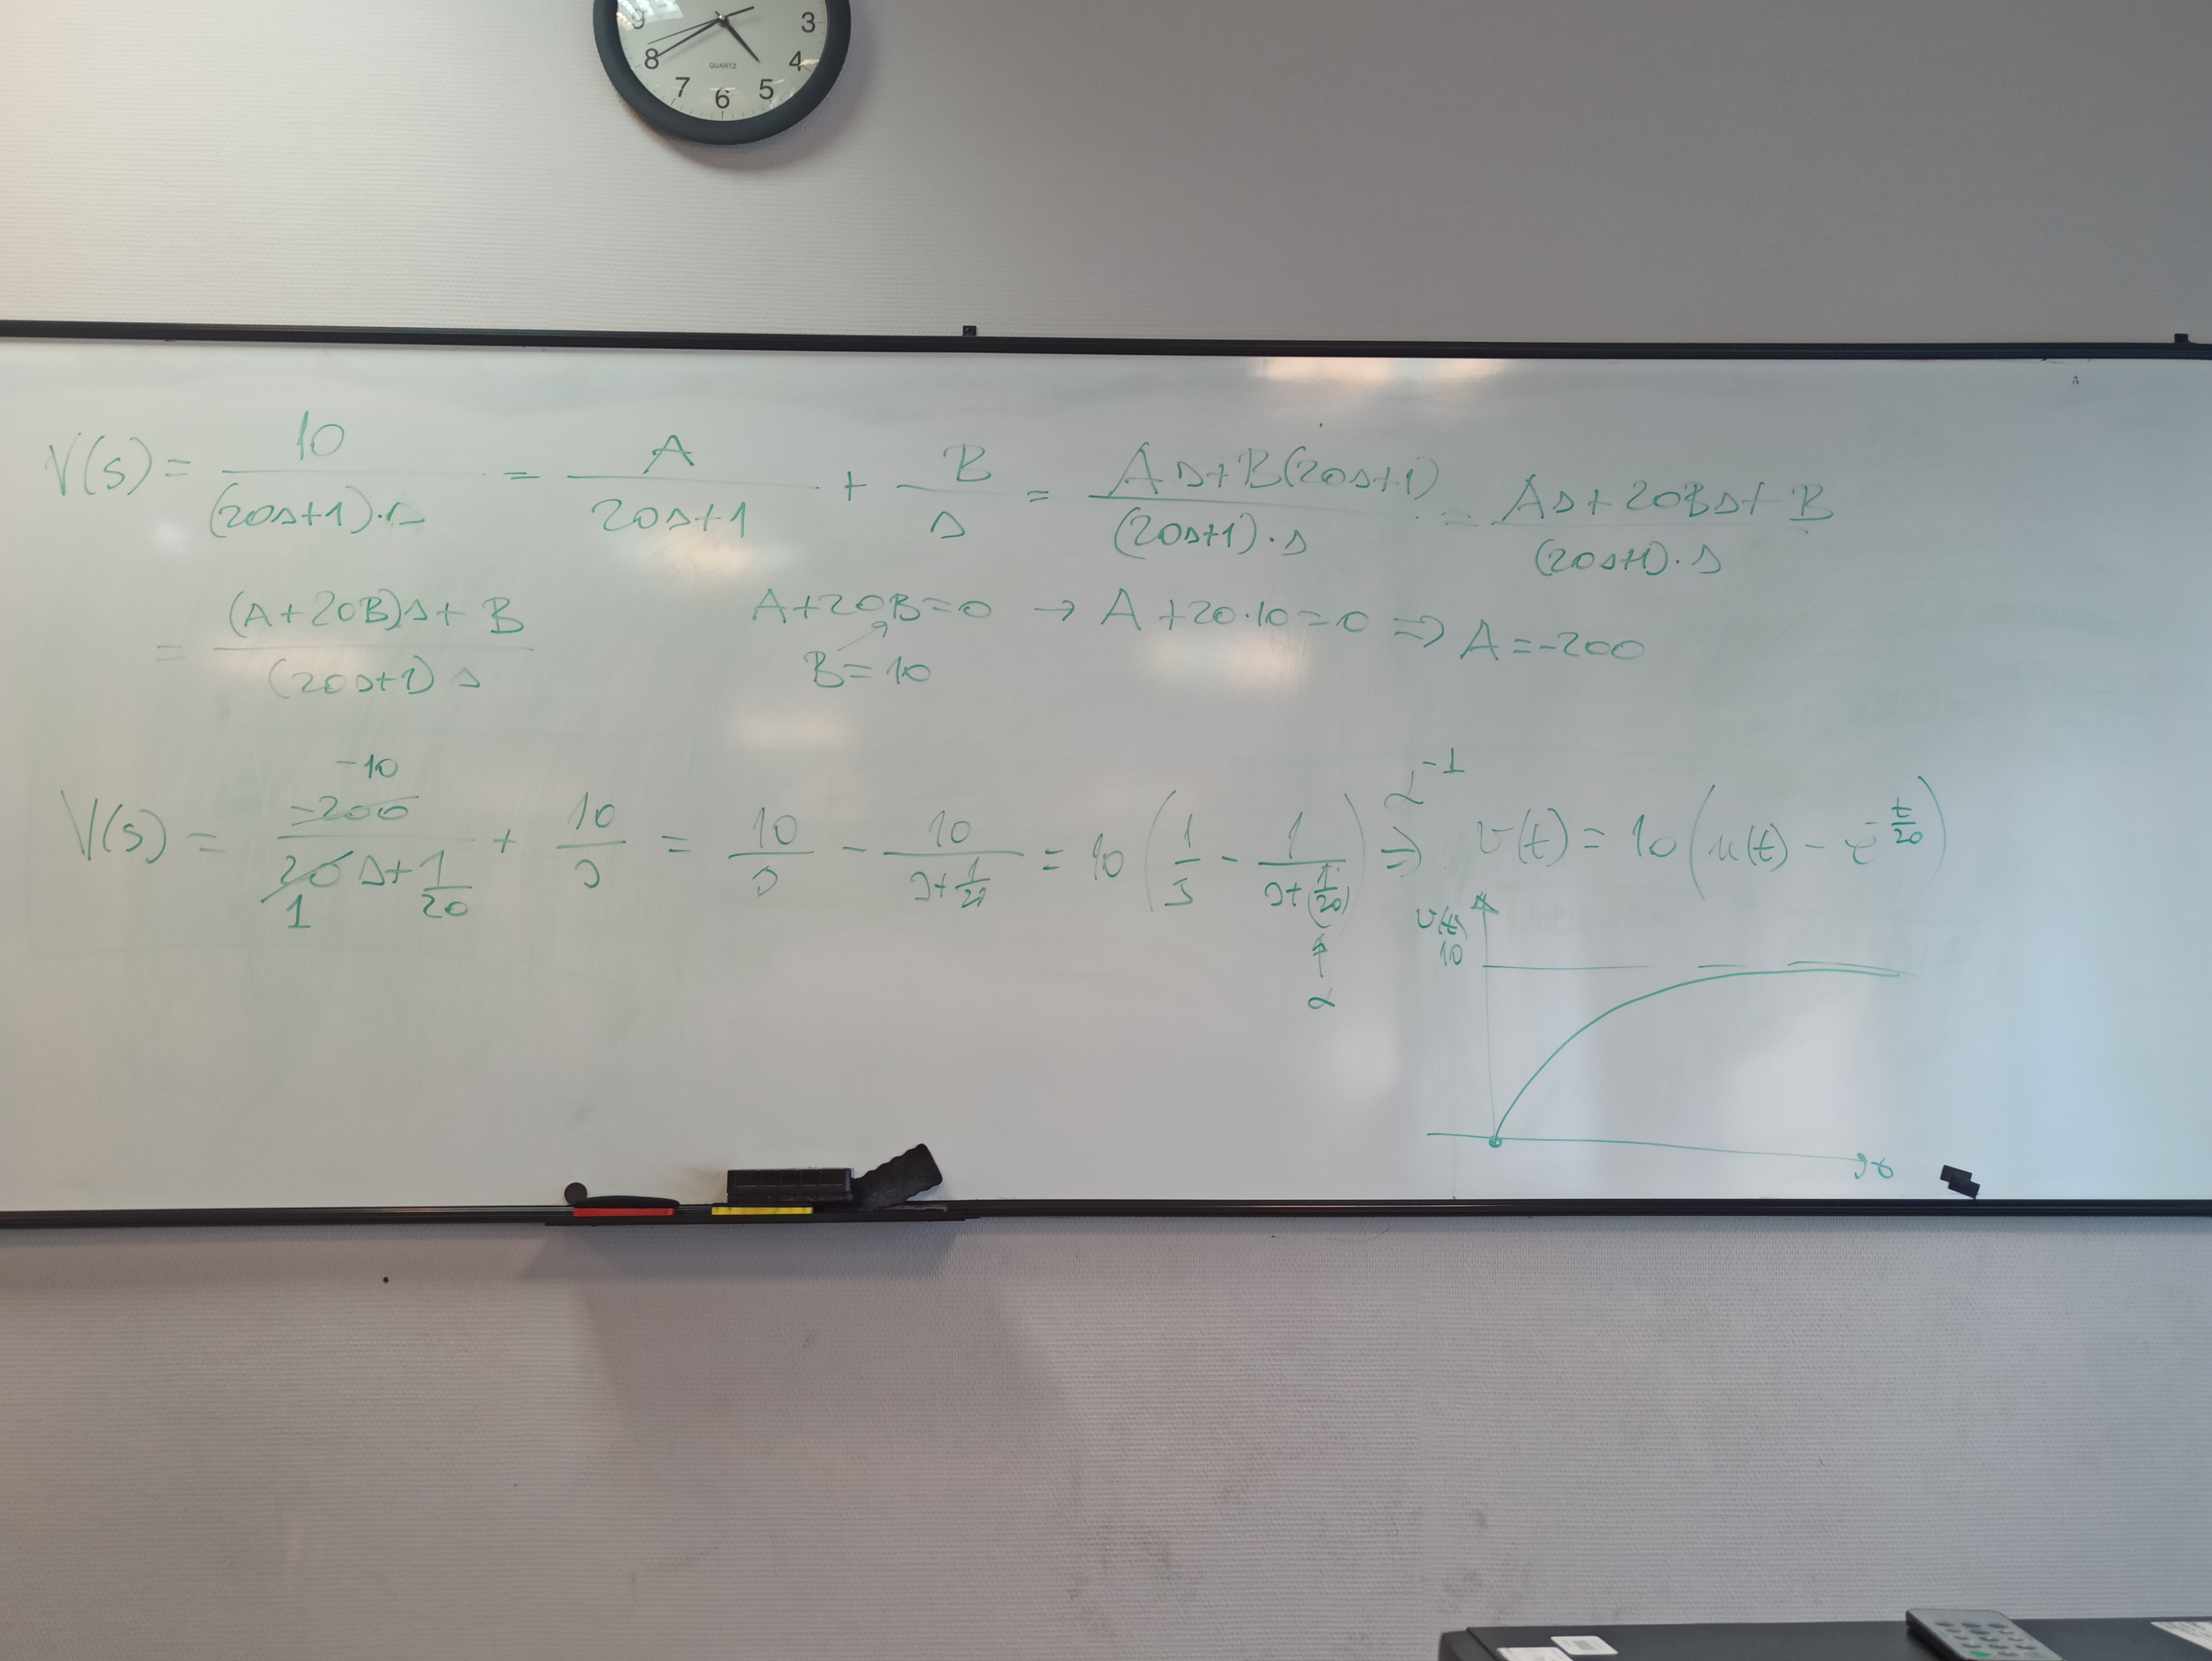 9 3
8 4
QUARTZ
7 6 5
V(s) = 10 / (20s+1)·s = A / 20s+1 + B / s = As+B(20s+1) / (20s+1)·s = As+20Bs+B / (20s+1)·s
= (A+20B)s+B / (20s+1)s A+20B=0 → A+20·10=0 ⇒ A=-200
B=10
V(s) = -10 -200 / 20s+1/20 1 + 10/s = 10/s - 10 / s+1/20 = 10(1/s - 1 / s+(1/20)) ℒ^-1 ⇒ v(t) = 10(u(t) - e^-t/20)
α
v(t)
10
t